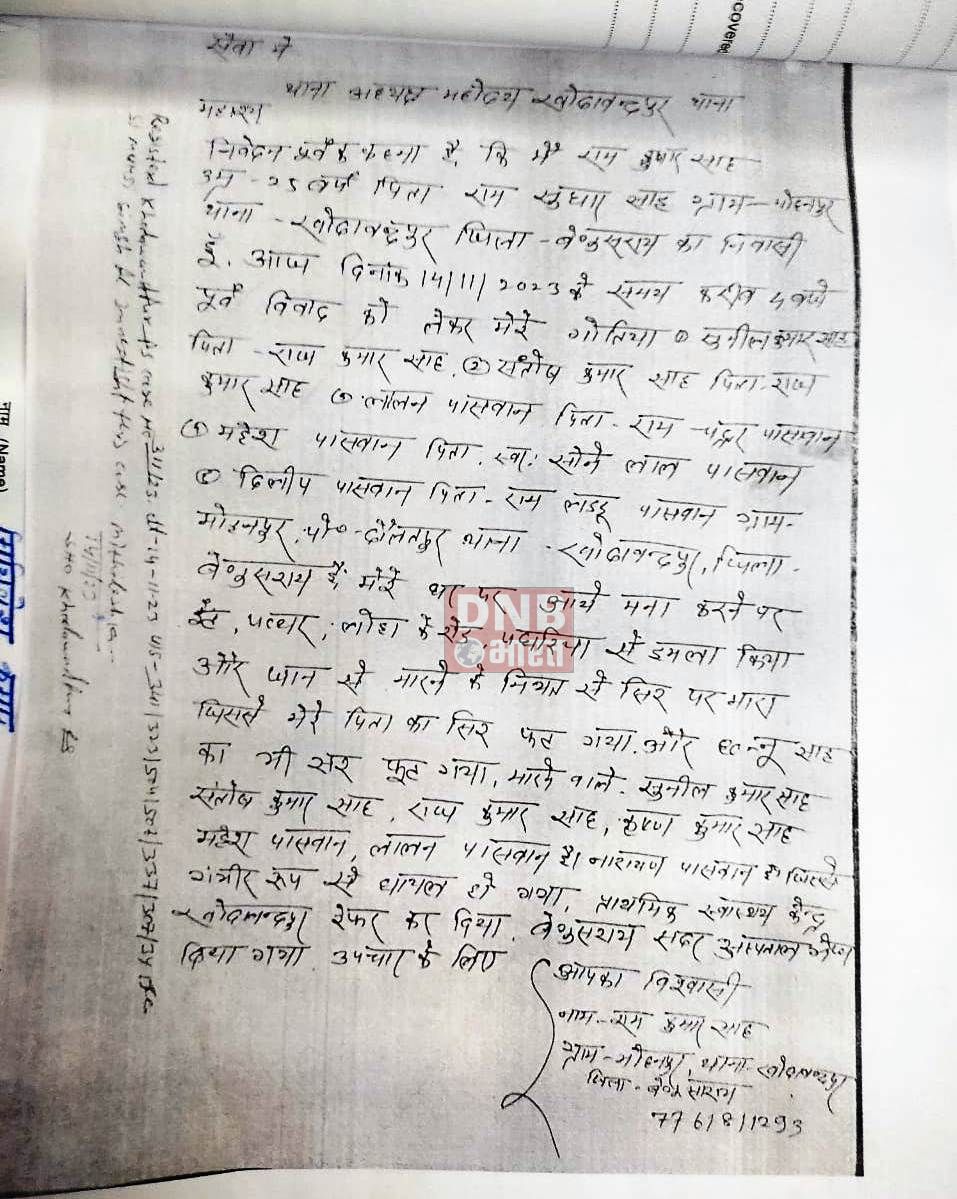 सेवा में
थाना अध्यक्ष महोदय खोदावन्दपुर थाना
महाशय
निवेदन पूर्वक कहना है, कि मैं राम कुमार साह
उम्र - 25 वर्ष पिता राम सुधार साह ग्राम - मोहनपुर
थाना - खोदावन्दपुर जिला - बेगुसराय का निवासी
हूँ. आज दिनांक 14/11/2023 के समय करीब 4 बजे
पूर्व विवाद को लेकर मेरे गोतिया ① सुनील कुमार साह
पिता - राज कुमार साह, ② संतोष कुमार साह पिता - राज
कुमार साह ③ लालन पासवान पिता - राम चंद्र पासवान
④ महेश पासवान पिता. स्व: सोने लाल पासवान
⑤ दिलीप पासवान पिता - राम लड्डू पासवान ग्राम -
मोहनपुर, पो० - दौलतपुर थाना - खोदावन्दपुर, जिला -
बेगुसराय मेरे घर पर आये मना करने पर
ईंट, पत्थर, लोहा के रोड, से हमला किया
और जान से मारने के नियत से सिर पर मारा
जिससे मेरे पिता का सिर फट गया. और साह
का भी सर फूट गया, मारने वाले - सुनील कुमार साह
संतोष कुमार साह, राज कुमार साह, कृष्ण कुमार साह
महेश पासवान, लालन पासवान है। नारायण पासवान है। जिससे
गंभीर रूप से घायल हो गया, प्राथमिक स्वास्थय केन्द्र
खोदावन्दपुर रेफर कर दिया. बेगुसराय सदर अस्पताल भेजा
दिया गया. उपचार के लिए
आपका विश्वासी
नाम - राम कुमार साह
ग्राम - मोहनपुर, थाना - खोदावन्दपुर
जिला - बेगुसराय
7761811293
DNB
भारती
311/23 dt-14-11-23 U/S-341/323/504/507/337/307/34 IPC
14/11/23
SHO Khodawandpur PS
नाम (Name)
covered